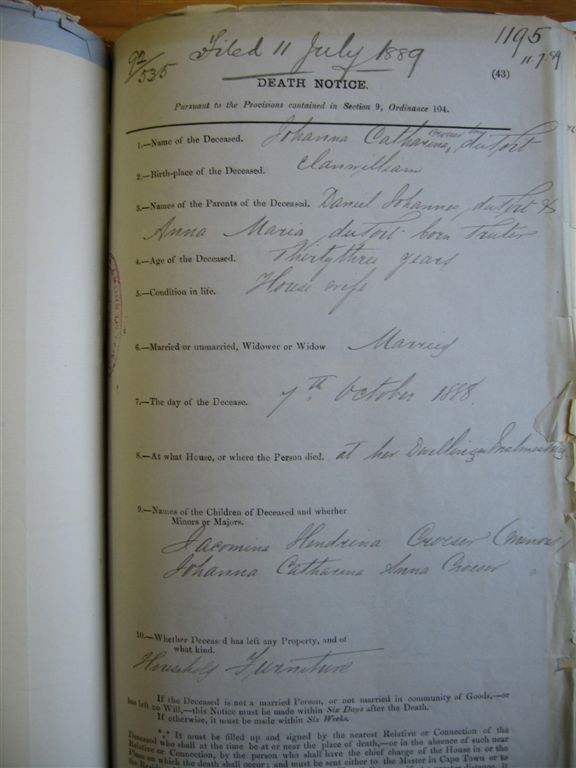 1195
92/535 Filed 11 July 1889
11.7.89
(43)
DEATH NOTICE.
Pursuant to the Provisions contained in Section 9, Ordinance 104.
1.—Name of the Deceased. Johanna Catharina, dutoit
2.—Birth-place of the Deceased. Clanwilliam
3.—Names of the Parents of the Deceased. Daniel Johannes, dutoit &
Anna Maria, dutoit born Truter
4.—Age of the Deceased. Thirty three years
5.—Condition in life. House wife
6.—Married or unmarried, Widower or Widow Married
7.—The day of the Decease. 7th October 1888.
8.—At what House, or where the Person died. at her Dwelling Malmesbury
9.—Names of the Children of Deceased and whether
Minors or Majors.
Jacomina Hendrina Croeser (minor)
Johanna Catharina Anna Croeser
10.—Whether Deceased has left any Property, and of
what kind.
Household Furniture
If the Deceased is not a married Person, or not married in community of Goods,—or
has left no Will,—this Notice must be made within Six Days after the Death.
If otherwise, it must be made within Six Weeks.
It must be filled up and signed by the nearest Relative or Connection of the
Deceased who shall at the time be at or near the place of death,—or in the absence of such near
Relative or Connection, by the person who shall have the chief charge of the House in or the
Place on which the death shall occur; and must be sent either to the Master in Cape Town or to